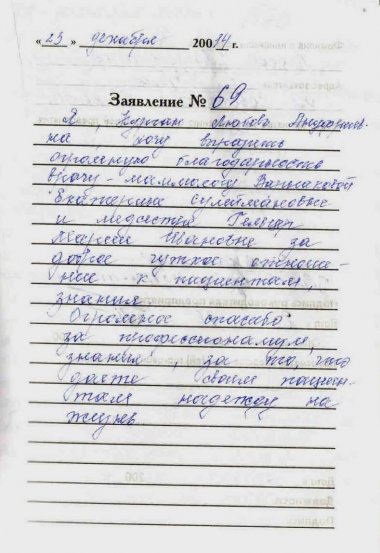 « 23 » декабря 20014 г.
Заявление № 69
Я, Курган Любовь Андреев-
на хочу выразить
огромную благодарность
врачу - маммологу
Екатерине Сулеймановне
и медсестре
Марии Ивановне за
доброе чуткое отноше-
ние к пациентам,
знания.
Огромное спасибо
за профессионализм
знания!, за то, что
даете своим пациен-
там надежду на
жизнь